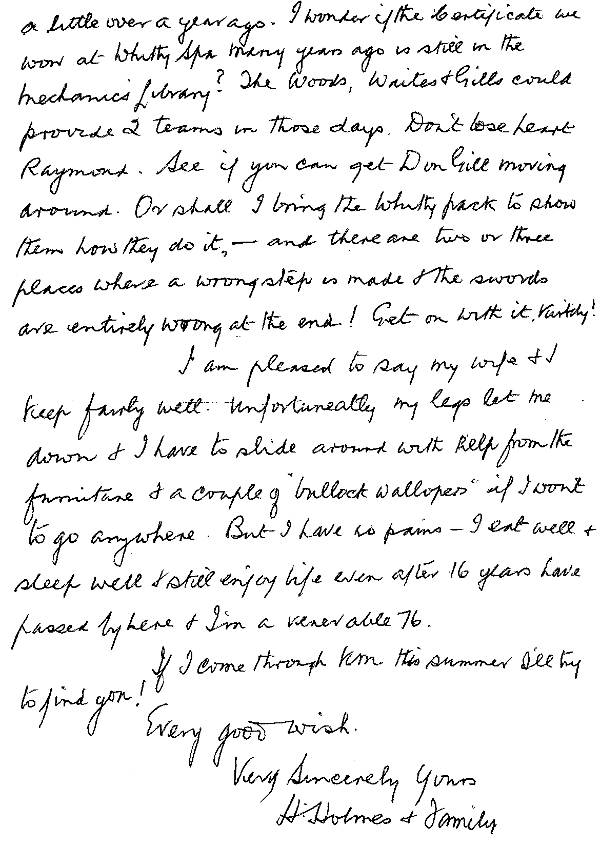 a little over a year ago. I wonder if the Certificate we
won at Whitby Spa many years ago is still in the
Mechanics Library? The Woods, Waites & Gills could
provide 2 teams in those days. Don't lose heart
Raymond. See if you can get Don Gill moving
around. Or shall I bring the Whitby pack to show
them how they do it, — and there are two or three
places where a wrong step is made & the swords
are entirely wrong at the end! Get on with it,
I am pleased to say my wife & I
keep fairly well. Unfortuneatly my legs let me
down & I have to slide around with help from the
furniture & a couple of "bullock wallopers" if I wont
to go anywhere. But I have no pains – I eat well &
sleep well & still enjoy life even after 16 years have
passed by here & I'm a venerable 76.
If I come through this summer I'll try
to find you!
Every good wish.
Very Sincerely Yours
H. Holmes & Family